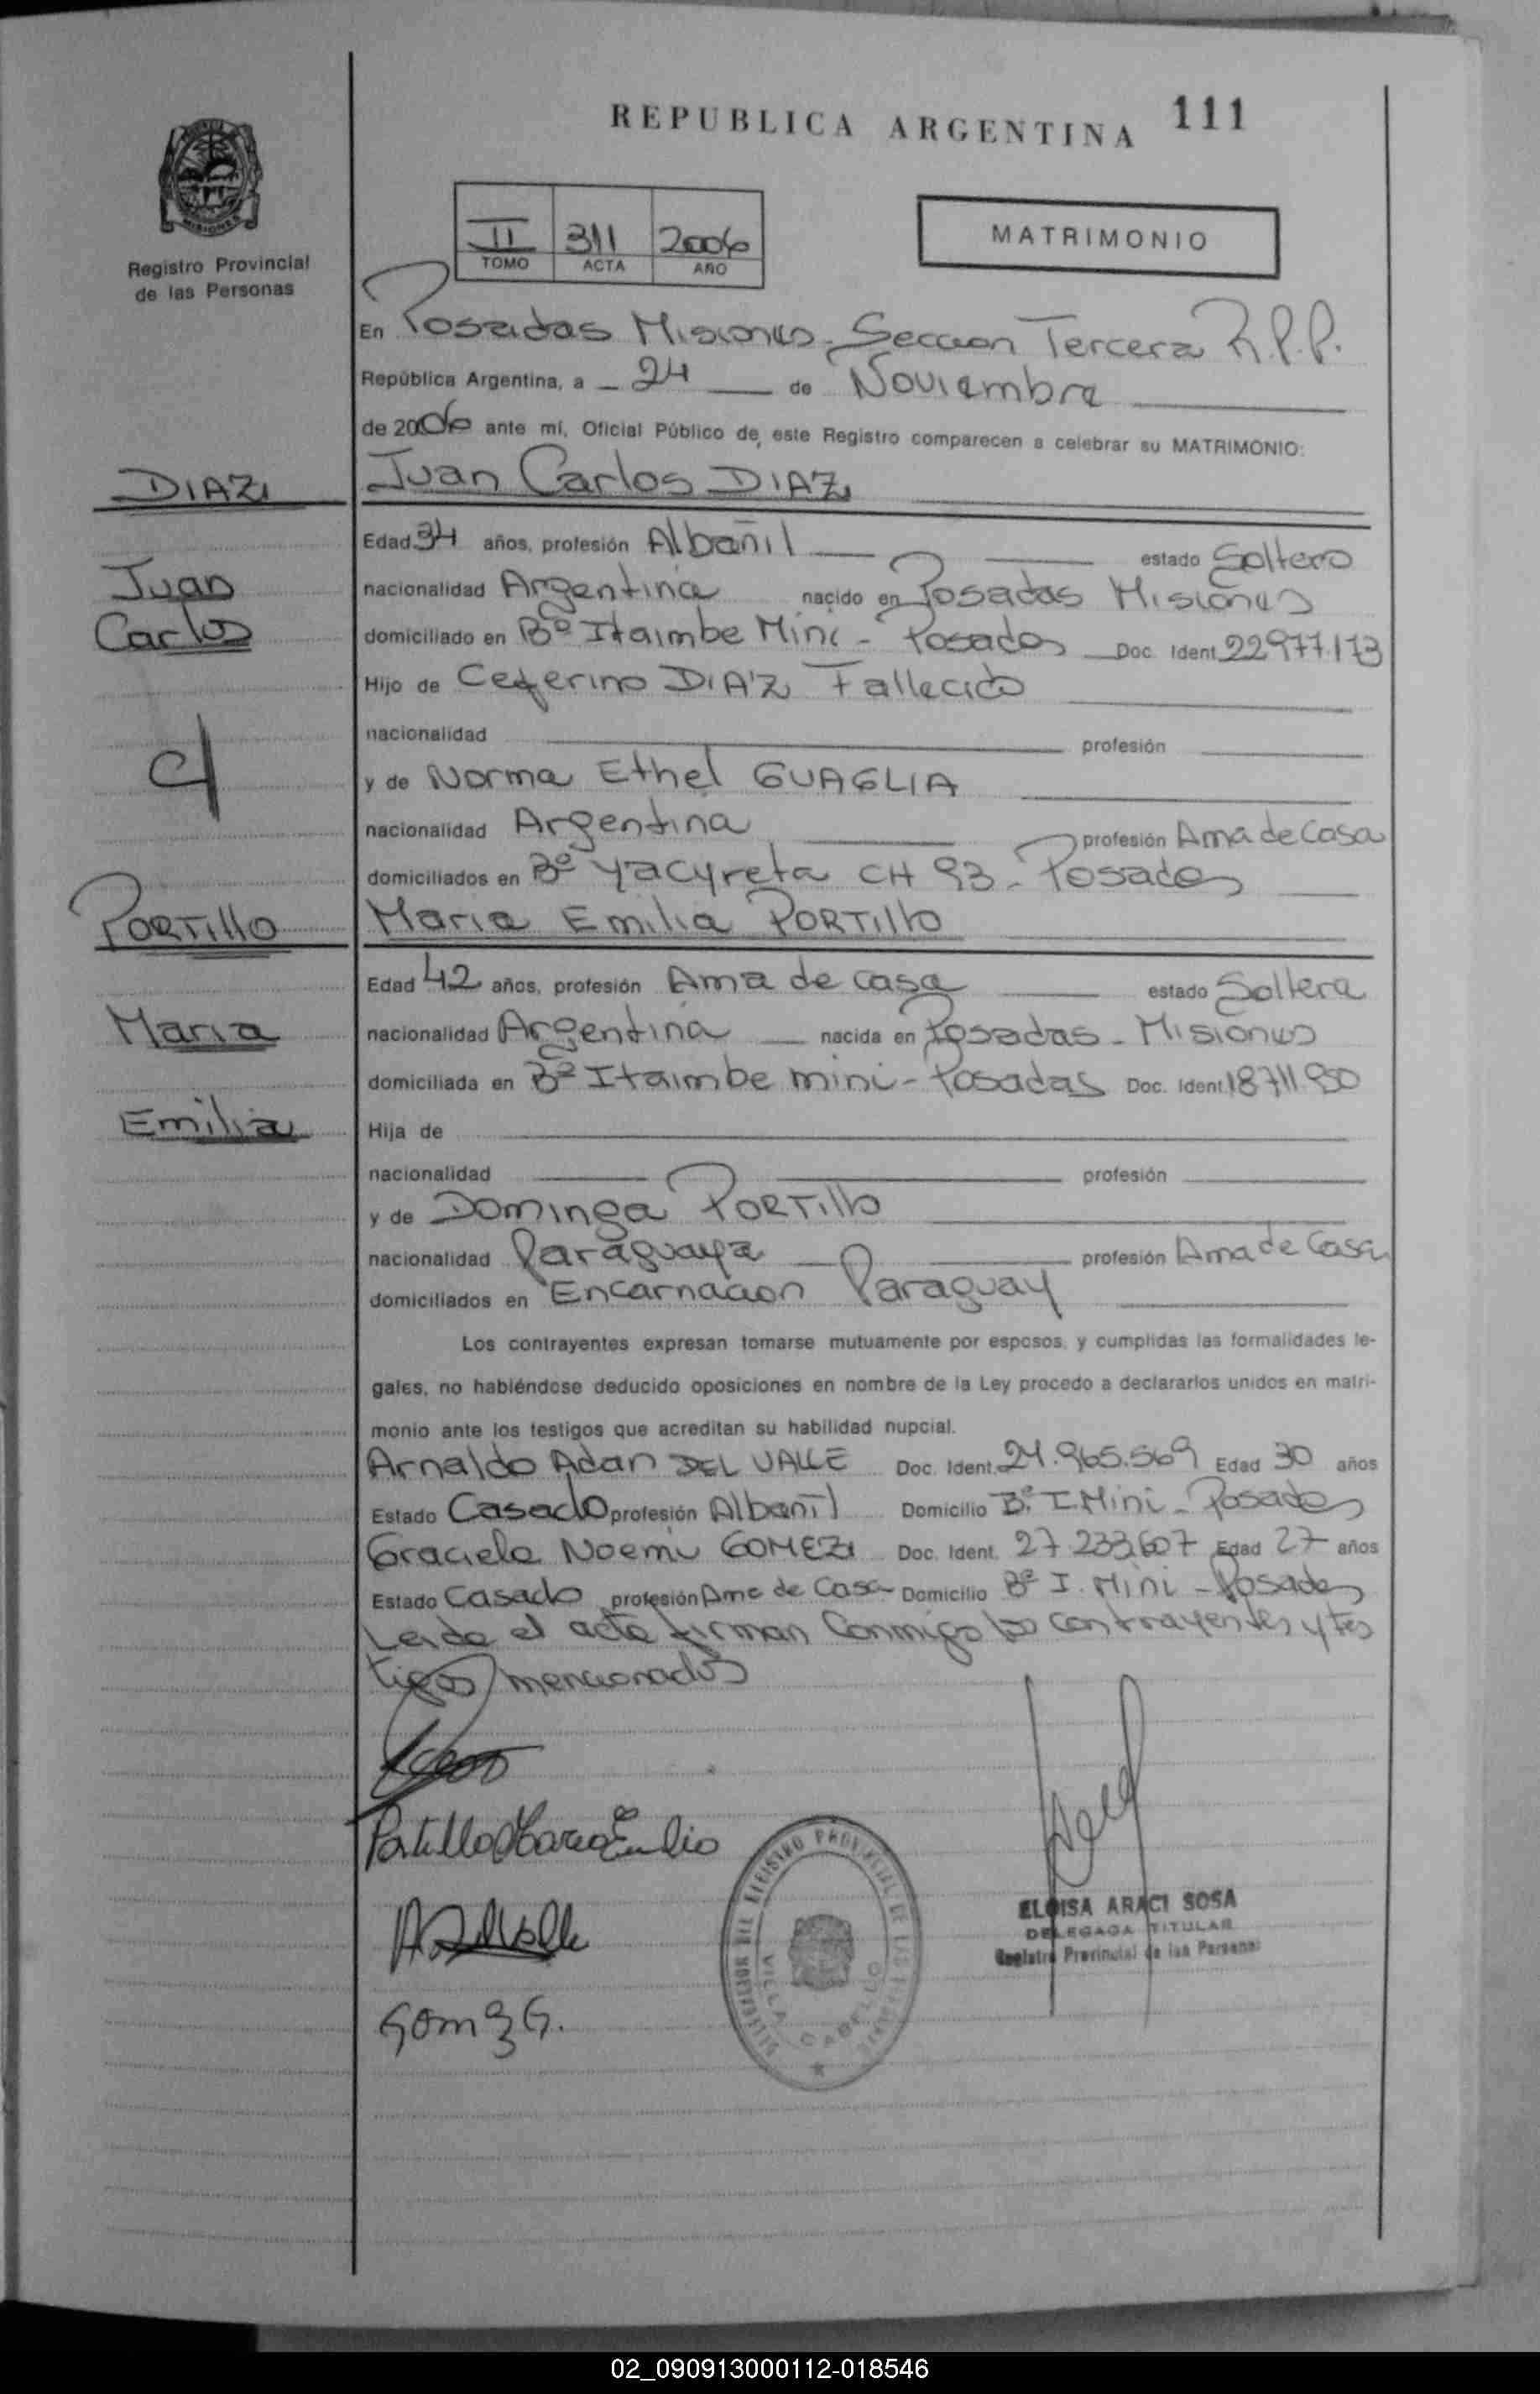 REPUBLICA ARGENTINA 111
MISIONES
Registro Provincial
de las Personas
II 311 2006
TOMO ACTA AÑO
MATRIMONIO
En Posadas Misiones - Seccion Tercera R.P.P.
República Argentina, a 24 de Noviembre
de 2006 ante mí, Oficial Público de este Registro comparecen a celebrar su MATRIMONIO:
DIAZ
Juan Carlos DIAZ
Edad 34 años, profesión Albañil estado Soltero
Juan
nacionalidad Argentina nacido en Posadas Misiones
Carlos
domiciliado en Bº Itaimbe Mini - Posadas Doc. Ident. 22977.173
Hijo de Ceferino DIAZ Fallecido
nacionalidad profesión
y de Norma Ethel GUAGLIA
nacionalidad Argentina profesión Ama de Casa
domiciliados en Bº Yacyreta CH 93 - Posadas
PORTILLO
Maria Emilia PORTILLO
Edad 42 años, profesión Ama de casa estado Soltera
Maria
nacionalidad Argentina nacida en Posadas - Misiones
domiciliada en Bº Itaimbe mini - Posadas Doc. Ident. 18711.950
Emilia
Hija de
nacionalidad profesión
y de Dominga PORTILLO
nacionalidad Paraguaya profesión Ama de Casa
domiciliados en Encarnacion Paraguay
Los contrayentes expresan tomarse mutuamente por esposos, y cumplidas las formalidades le-
gales, no habiéndose deducido oposiciones en nombre de la Ley procedo a declararlos unidos en matri-
monio ante los testigos que acreditan su habilidad nupcial.
Arnaldo Adan DEL VALLE Doc. Ident. 24.965.569 Edad 30 años
Estado Casado profesión Albañil Domicilio Bº I. Mini - Posadas
Graciela Noemi GOMEZ Doc. Ident. 27.233.607 Edad 27 años
Estado Casado profesión Ama de Casa Domicilio Bº I. Mini - Posadas
Leida el acta firman Conmigo los contrayentes y tes
tigos mencionados
Portillo Maria Emilia
A DelValle
Gomez G.
VILLA CABELLO
ELOISA ARACI SOSA
DELEGADA TITULAR
Registro Provincial de las Personas
02_090913000112-018546